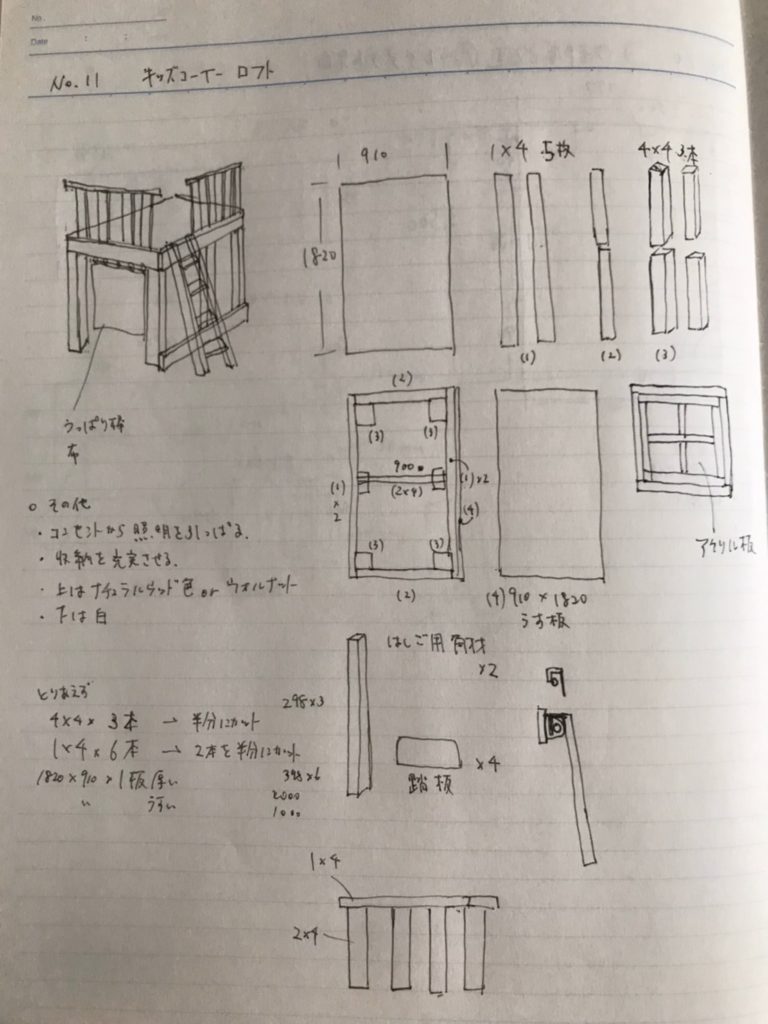 No.
Date : :
No.11 キッズコーナー ロフト
910
1820
1×4 5枚
4×4 3本
(1)
(2)
(3)
つっぱり棒
布
(2)
(3)
(3)
900
(2×4)
(1)
×
2
(1)×2
(4)
(3)
(3)
(2)
(4) 910 × 1820
うす板
アクリル板
○ その他
・コンセントから照明を引っぱる.
・収納を充実させる.
・上はナチュラルウッド色 or ウォルナット
・下は白
はしご用角材
×2
踏板
×4
とりあえず
4×4× 3本 → 半分にカット
298×3
1×4×6本 → 2本を半分にカット
1820×910×1板厚い
〃 うすい
398×6
2000
1000
1×4
2×4